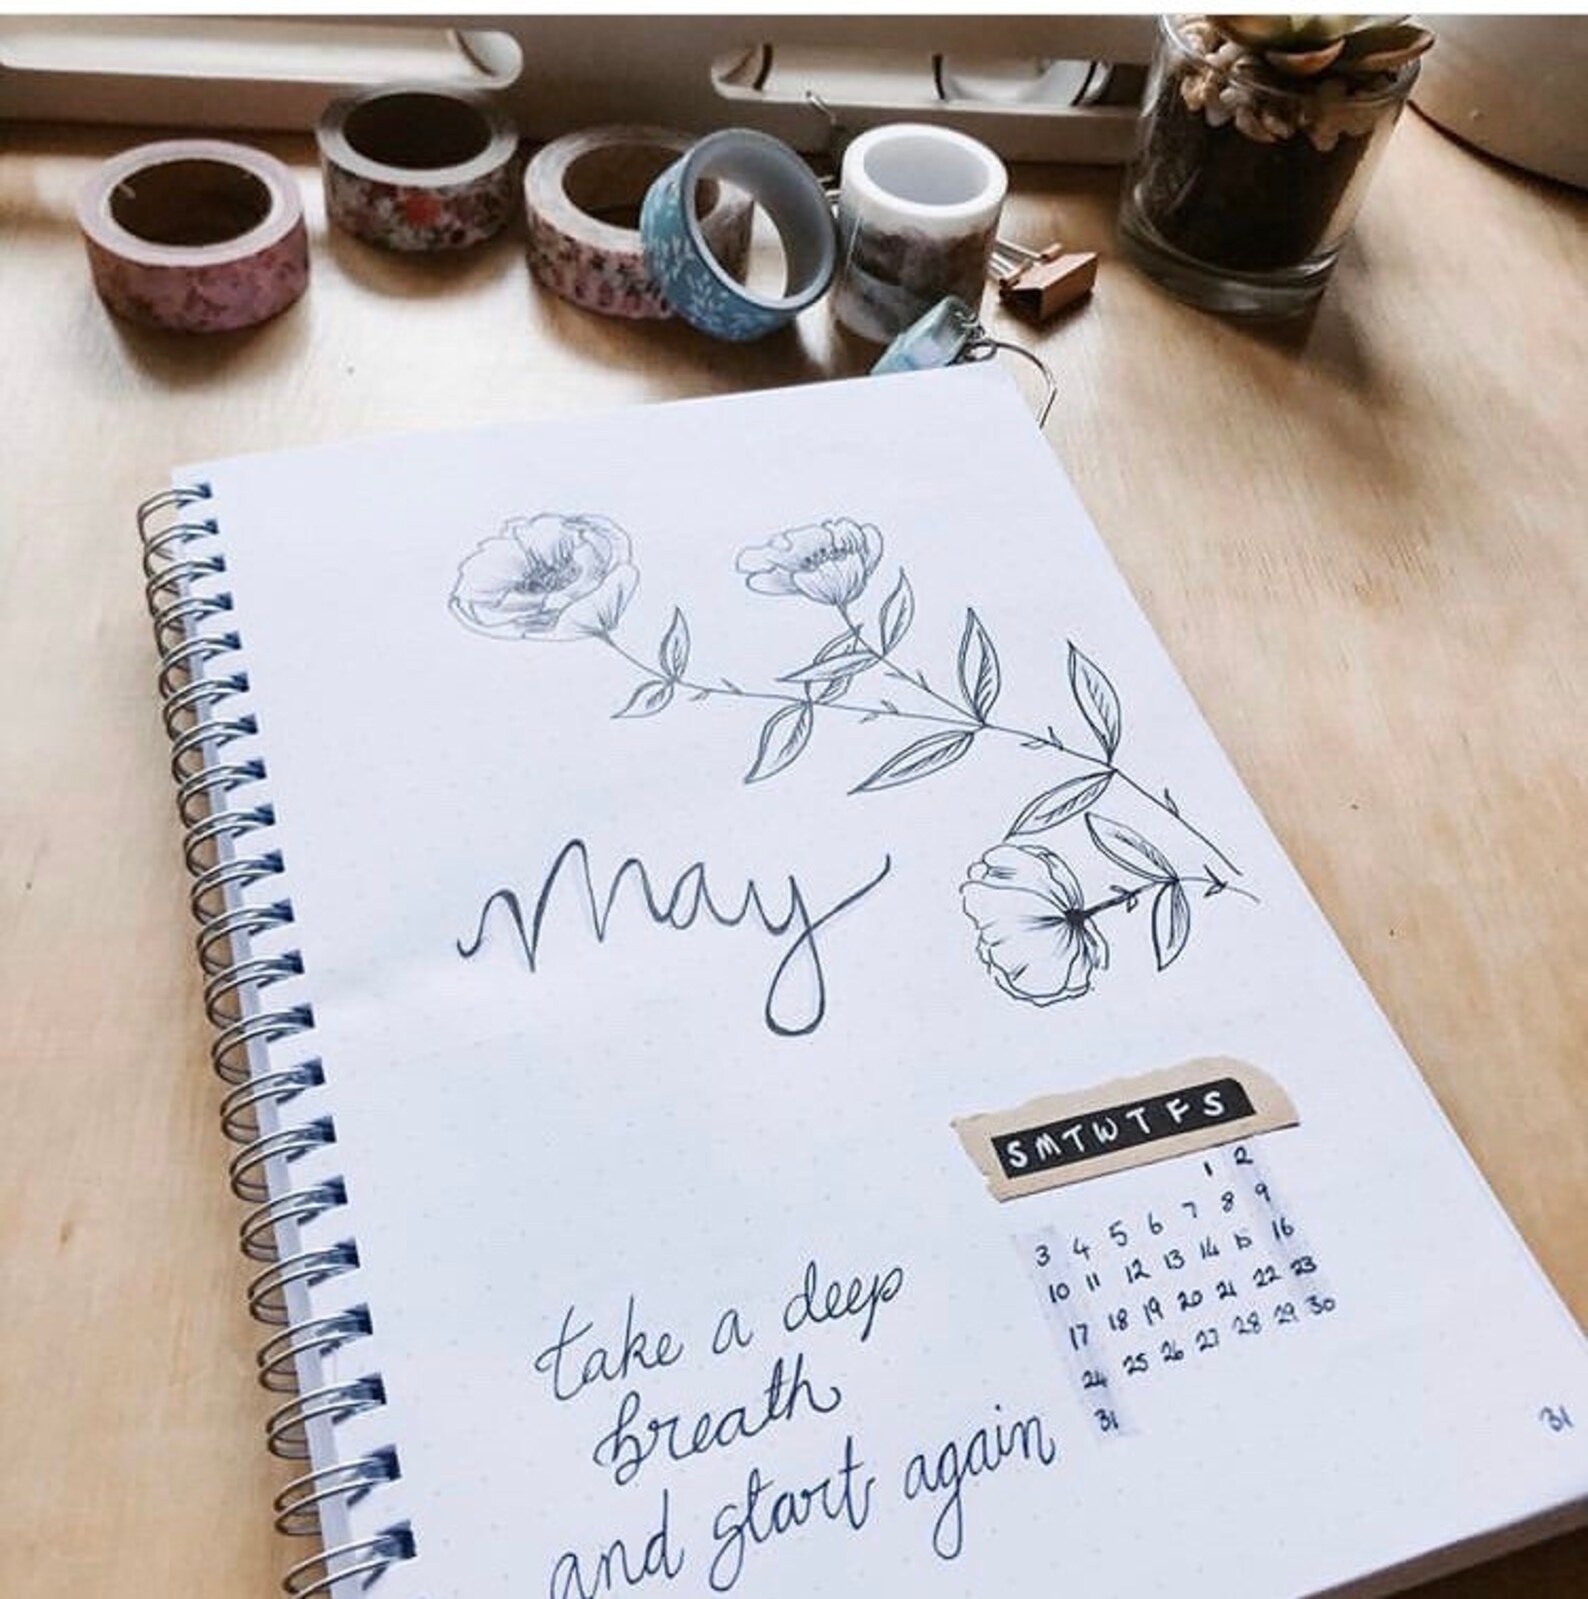 may
SMTWTFS
1 2
3 4 5 6 7 8 9
10 11 12 13 14 15 16
17 18 19 20 21 22 23
24 25 26 27 28 29 30
31
take a deep
breath
and start again
31